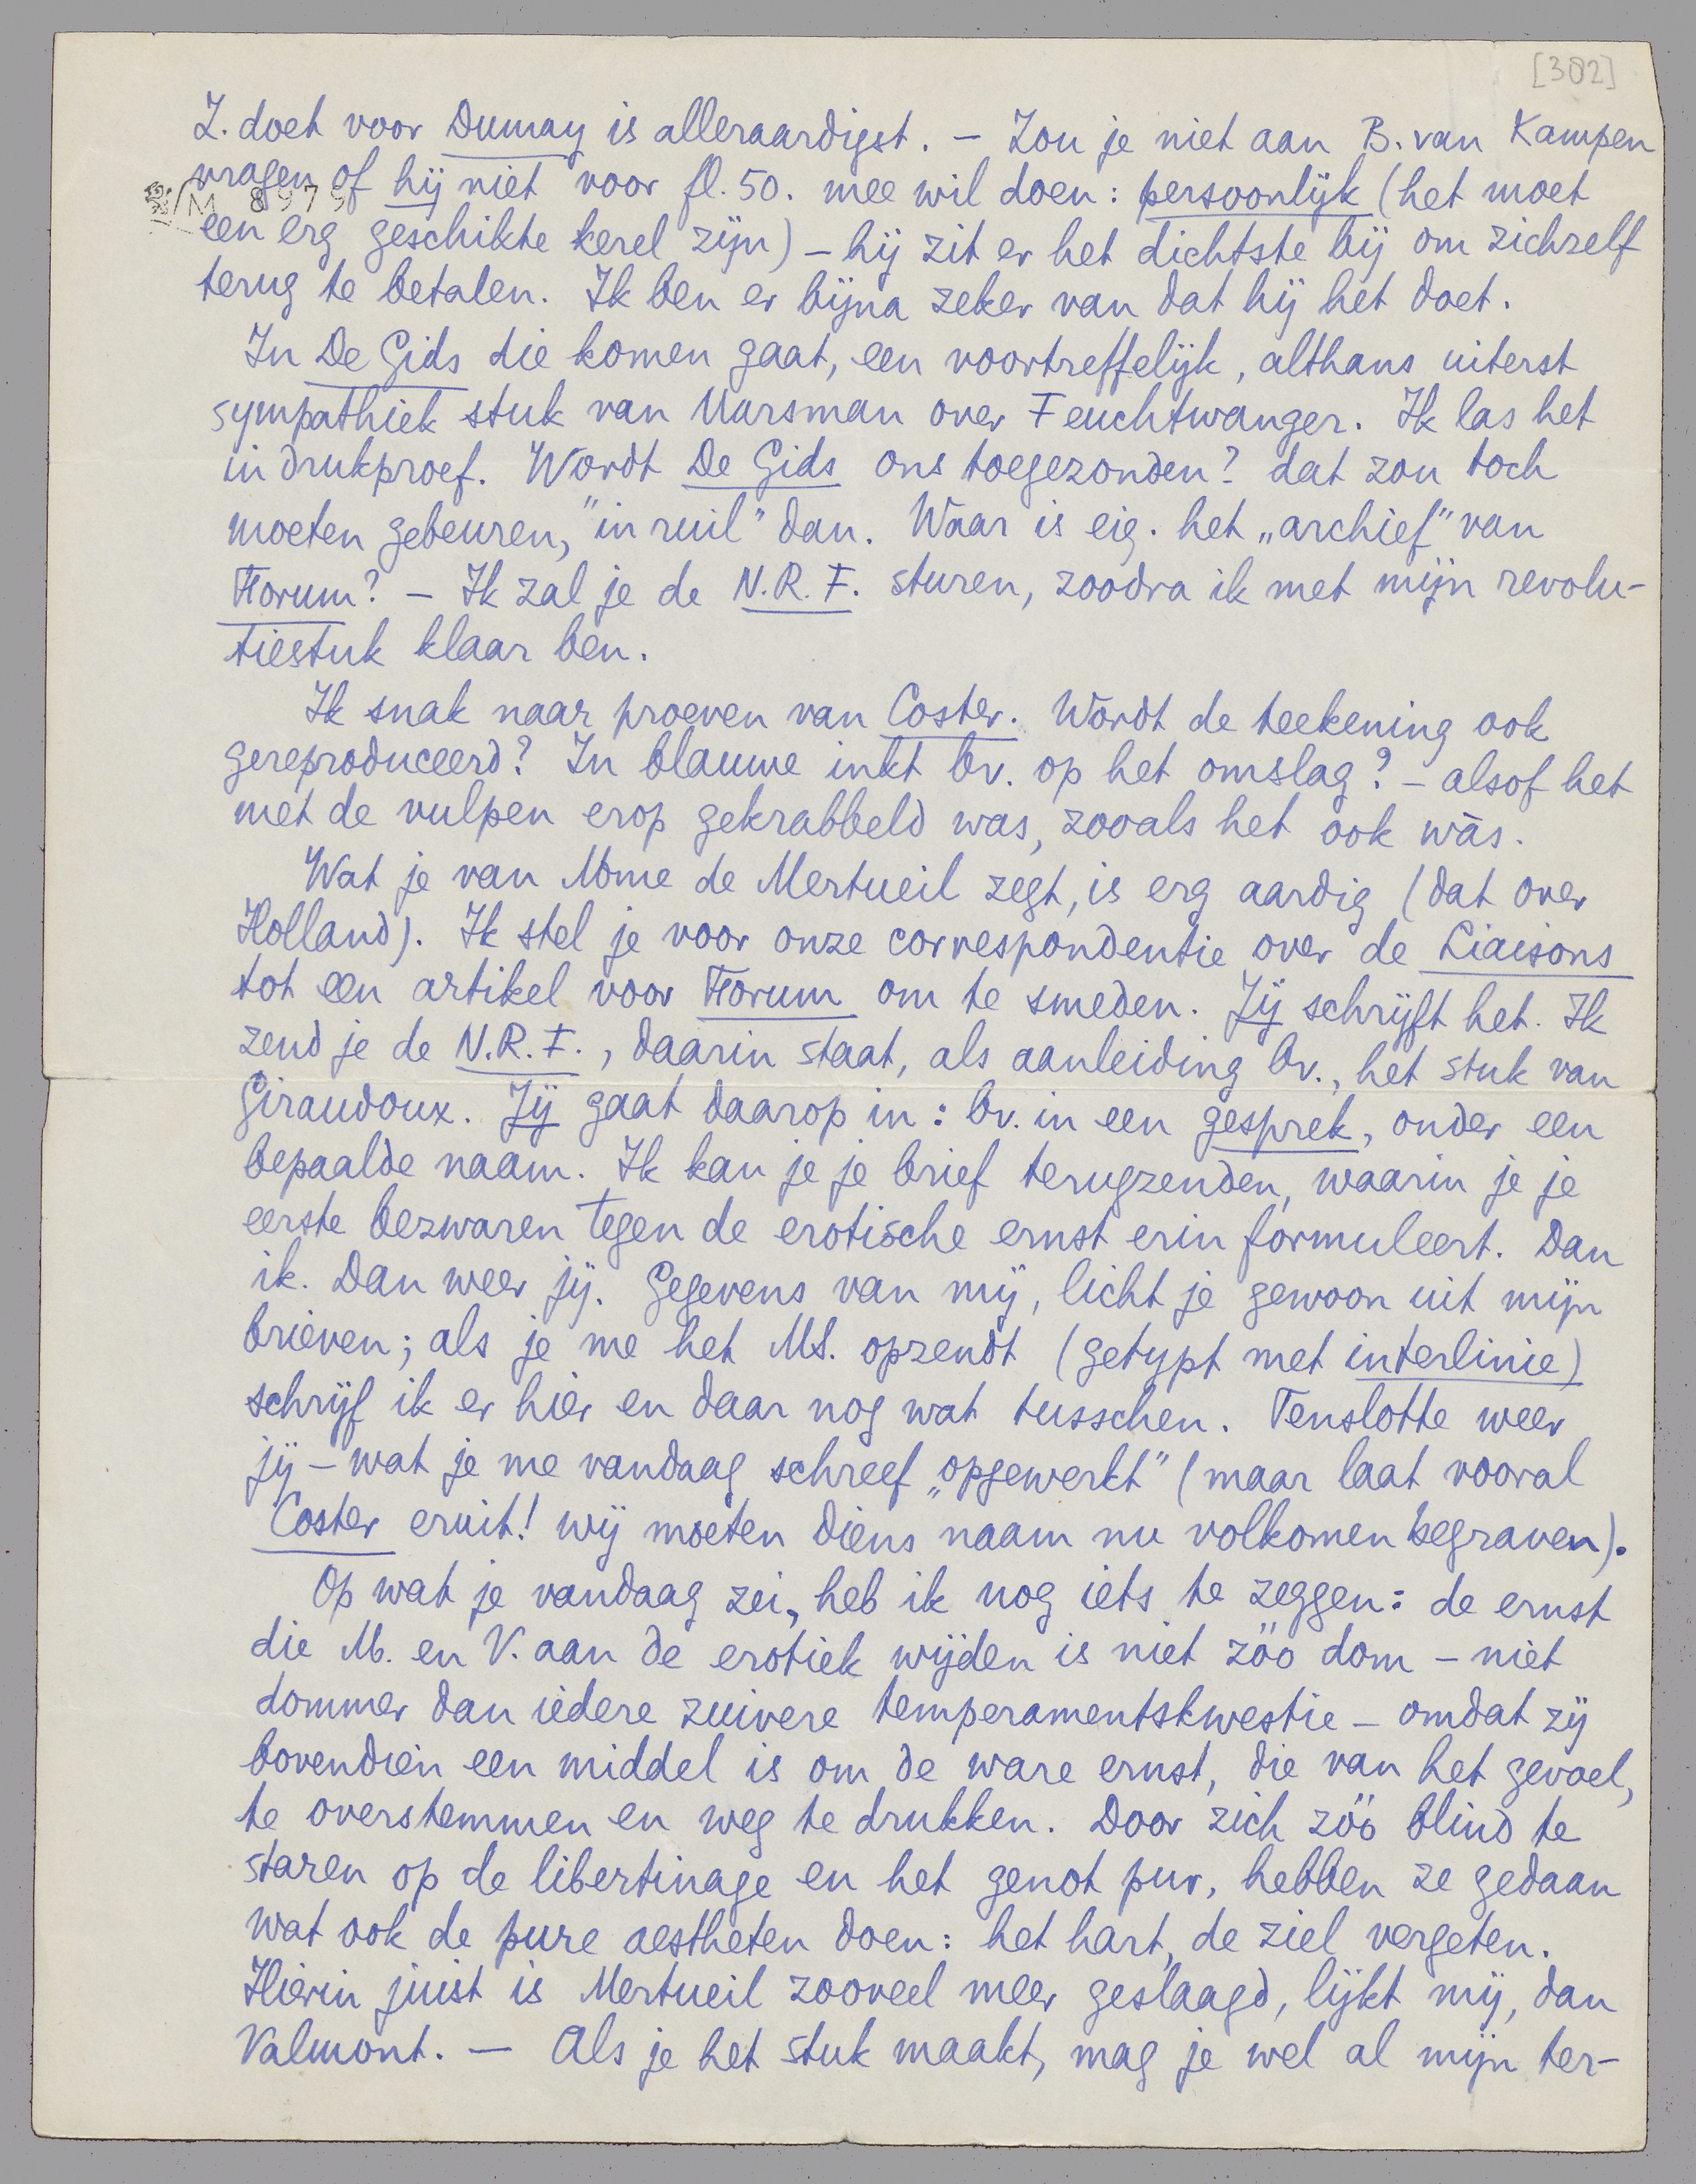 [382]
Z. doet voor Dumay is alleraardigst. – Zou je niet aan B. van Kampen
vragen of hij niet voor fl. 50. mee wil doen: persoonlijk (het moet
M 8979
een erg geschikte kerel zijn) – hij zit er het dichtste bij om zichzelf
terug te betalen. Ik ben er bijna zeker van dat hij het doet.
In De Gids die komen gaat, een voortreffelijk, althans uiterst
sympathiek stuk van Marsman over Feuchtwanger. Ik las het
in drukproef. Wordt De Gids ons toegezonden? dat zou toch
moeten gebeuren, "in ruil" dan. Waar is eig. het „archief" van
Forum? – Ik zal je de N.R.F. sturen, zoodra ik met mijn revolu-
tiestuk klaar ben.
Ik snak naar proeven van Coster. Wordt de teekening ook
gereproduceerd? In blauwe inkt bv. op het omslag? – alsof het
met de vulpen erop gekrabbeld was, zooals het ook wàs.
Wat je van Mme de Mertueil zegt, is erg aardig (dat over
Holland). Ik stel je voor onze correspondentie over de Liaisons
tot een artikel voor Forum om te smeden. Jij schrijft het. Ik
zend je de N.R.F., daarin staat, als aanleiding bv., het stuk van
Giraudoux. Jij gaat daarop in: bv. in een gesprek, onder een
bepaalde naam. Ik kan je je brief terugzenden, waarin je je
eerste bezwaren tegen de erotische ernst erin formuleert. Dan
ik. Dan weer jij. Gegevens van mij, licht je gewoon uit mijn
brieven; als je me het MS. opzendt (getypt met interlinie)
schrijf ik er hier en daar nog wat tusschen. Tenslotte weer
jij – wat je me vandaag schreef „opgewerkt" (maar laat vooral
Coster eruit! wij moeten diens naam nu volkomen begraven).
Op wat je vandaag zei, heb ik nog iets te zeggen: de ernst
die M. en V. aan de erotiek wijden is niet zóó dom – niet
dommer dan iedere zuivere temperamentskwestie – omdat zij
bovendien een middel is om de ware ernst, die van het gevoel,
te overstemmen en weg te drukken. Door zich zóó blind te
staren op de libertinage en het genot pur, hebben ze gedaan
wat ook de pure aestheten doen: het hart, de ziel vergeten.
Hierin juist is Mertueil zooveel meer geslaagd, lijkt mij, dan
Valmont. – Als je het stuk maakt, mag je wel al mijn ter-